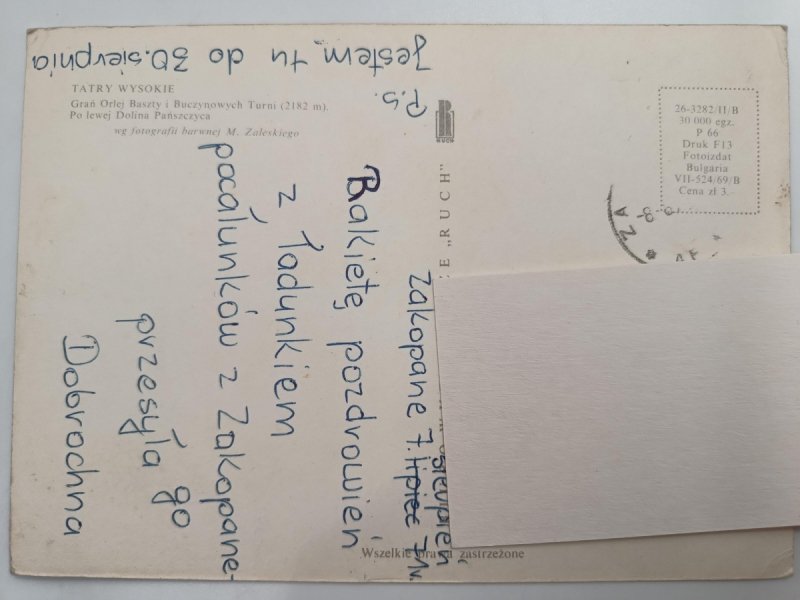 TATRY WYSOKIE
Grań Orlej Baszty i Buczynowych Turni (2182 m).
Po lewej Dolina Pańszczyca
wg fotografii barwnej M. Zaleskiego
RUCH
E „RUCH"
26-3282/II/B
30 000 egz.
P 66
Druk F13
Fotoizdat
Bułgaria
VII-524/69/B
Cena zł 3.-
ZA
Wszelkie prawa zastrzeżone
sierpień
Zakopane 7. lipiec 71r.
Rakietę pozdrowień
z ładunkiem
pocałunków z Zakopane-
go
przesyła
Dobrochna
P.S.
Jestem tu do 30. sierpnia